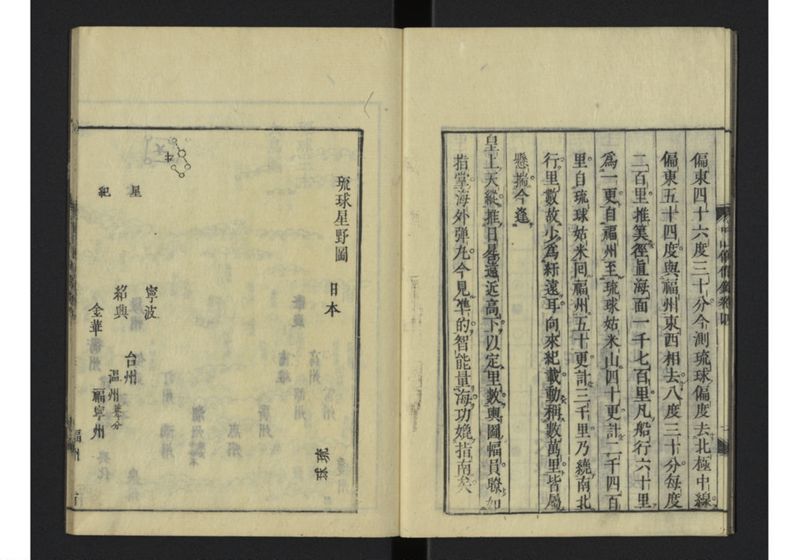 偏東四十六度三十分今測琉球偏度去北極中線
偏東五十四度與福州東西相去八度三十分每度
二百里推筭徑直海面一千七百里凡船行六十里
為一更自福州至琉球姑米山四十更計二千四百
里自琉球姑米回福州五十更計三千里乃繞南北
行里數故少為紆遠耳向來紀載動稱數萬里皆屬
懸揣今逢
皇上天縱推日晷遠近高下以定里數輿圖幅員瞭如
指掌海外彈丸今見準的智能量海功媲指南矣
琉球星野圖
日本
琉球
牛
星紀
寧波
紹興
金華
台州
溫州
福寧州
福州